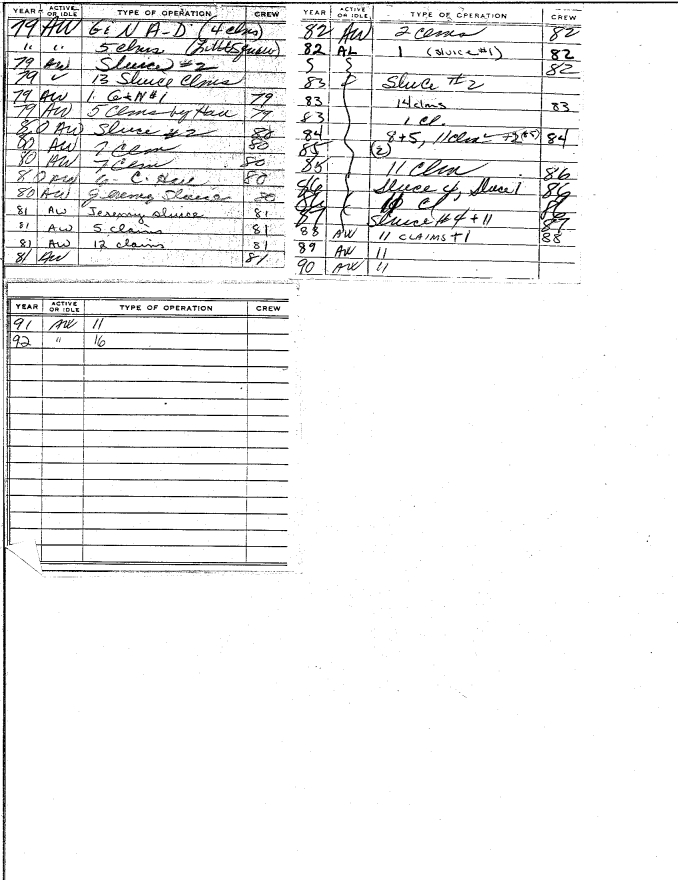 YEAR ACTIVE OR IDLE TYPE OF OPERATION CREW
79 AW G & N A-D (4 clms)
" " 5 clms
79 AW Sluice #2
79 13 Sluice Clms
79 AW 1. G & N #1 79
79 AW 5 Clms by Hall 79
80 AW Sluice #2 80
80 AW 7 Clm 80
80 AW 7 Clm 80
80 AW C. Hall 80
80 AW Jeremy Sluice 80
81 AW Jeremy sluice 81
81 AW 5 claims 81
81 AW 12 claims 81
81 AW 81
YEAR ACTIVE OR IDLE TYPE OF OPERATION CREW
82 AW 2 clms 82
82 AL 1 (sluice #1) 82
82
83 Sluce #2
83 14 clms 83
83 1 Cl.
84 8+5, 11 clm 84
85 (2)
85 11 Clm 86
86 Sluice 4, Sluce 1 86
86 86
87 Sluice #4 + 11 87
88 AW 11 CLAIMS + 1 88
89 AW 11
90 AW 11
YEAR ACTIVE OR IDLE TYPE OF OPERATION CREW
91 AW 11
92 " 16